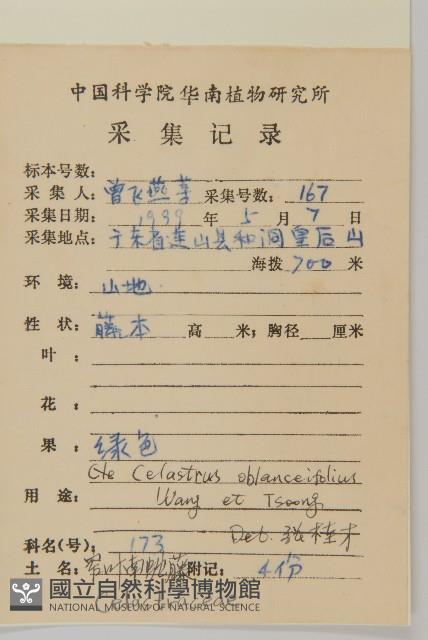 中国科学院华南植物研究所
采集记录
标本号数：
采集人：曾飞燕等 采集号数：167
采集日期：1999 年 5 月 7 日
采集地点：广东省连山县和洞皇后山
海拨 700 米
环境：山地
性状：藤本 高 米；胸径 厘米
叶：
花：
果：绿色
Celastrus oblanceifolius
用途： Wang et Tsoong
Det. 张桂才
科名(号)：173
土名：窄叶南蛇藤 附记：4份
國立自然科學博物館
NATIONAL MUSEUM OF NATURAL SCIENCE